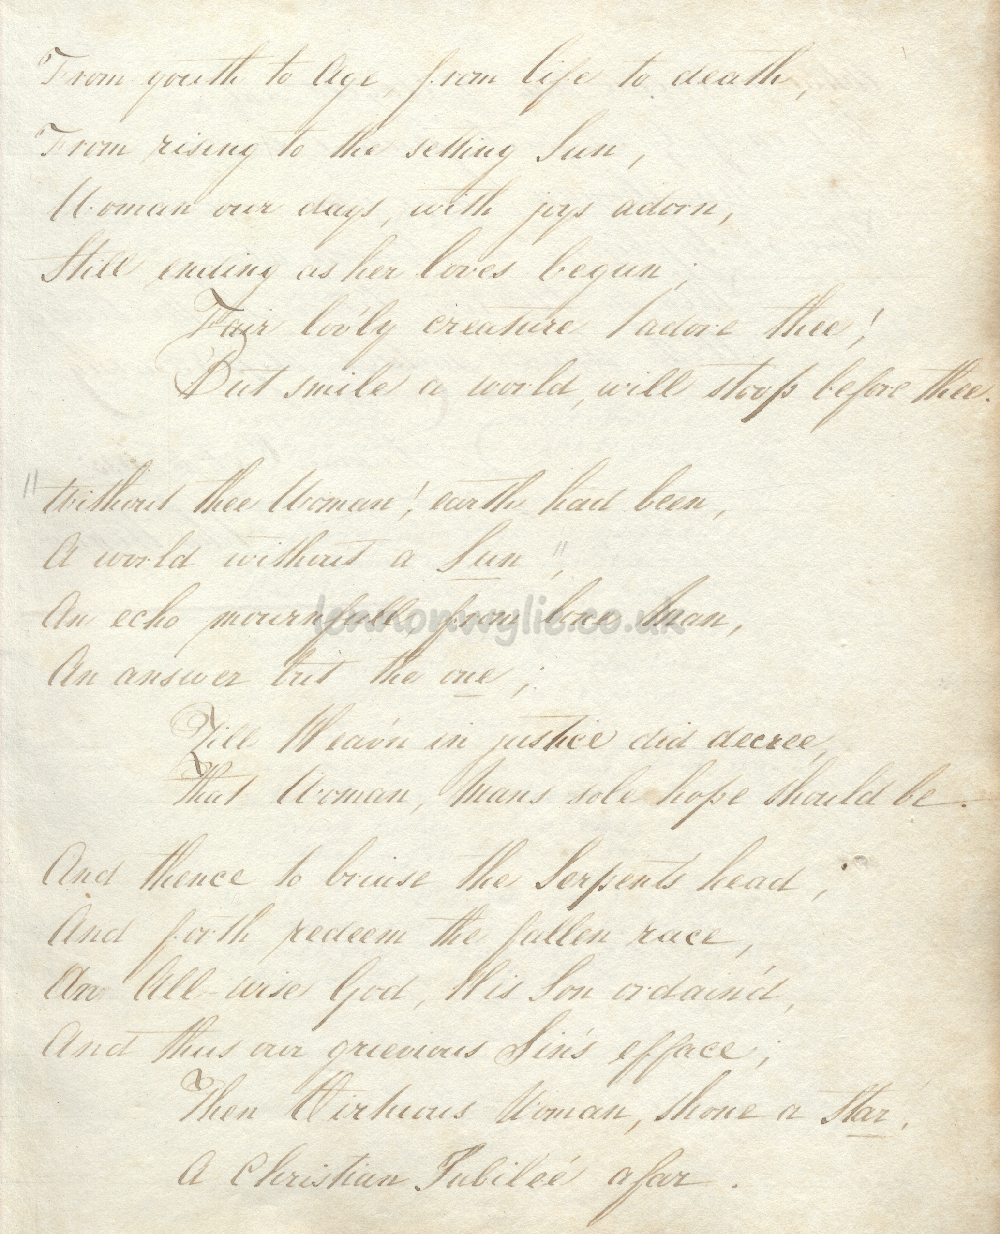 From youth to Age, from life to death,
From rising to the setting Sun,
Woman our days, with joys adorn,
Still ending as her loves begun;
Fair lov'ly creature I adore thee!
But smile a world, will stoop before thee.
"Without thee Woman! earth had been,
A world without a Sun",
An echo mournfull from lone Man,
lennonwylie.co.uk
An answer but the one;
Till Heav'n in justice did decree,
That Woman, Mans sole hope should be.
And thence to bruise the Serpents head,
And forth redeem the fallen race,
An All-wise God, His Son ordain'd,
And thus our grievious Sin's efface;
Then Virtuous Woman, shone a Star,
A Christian Jubileé afar.